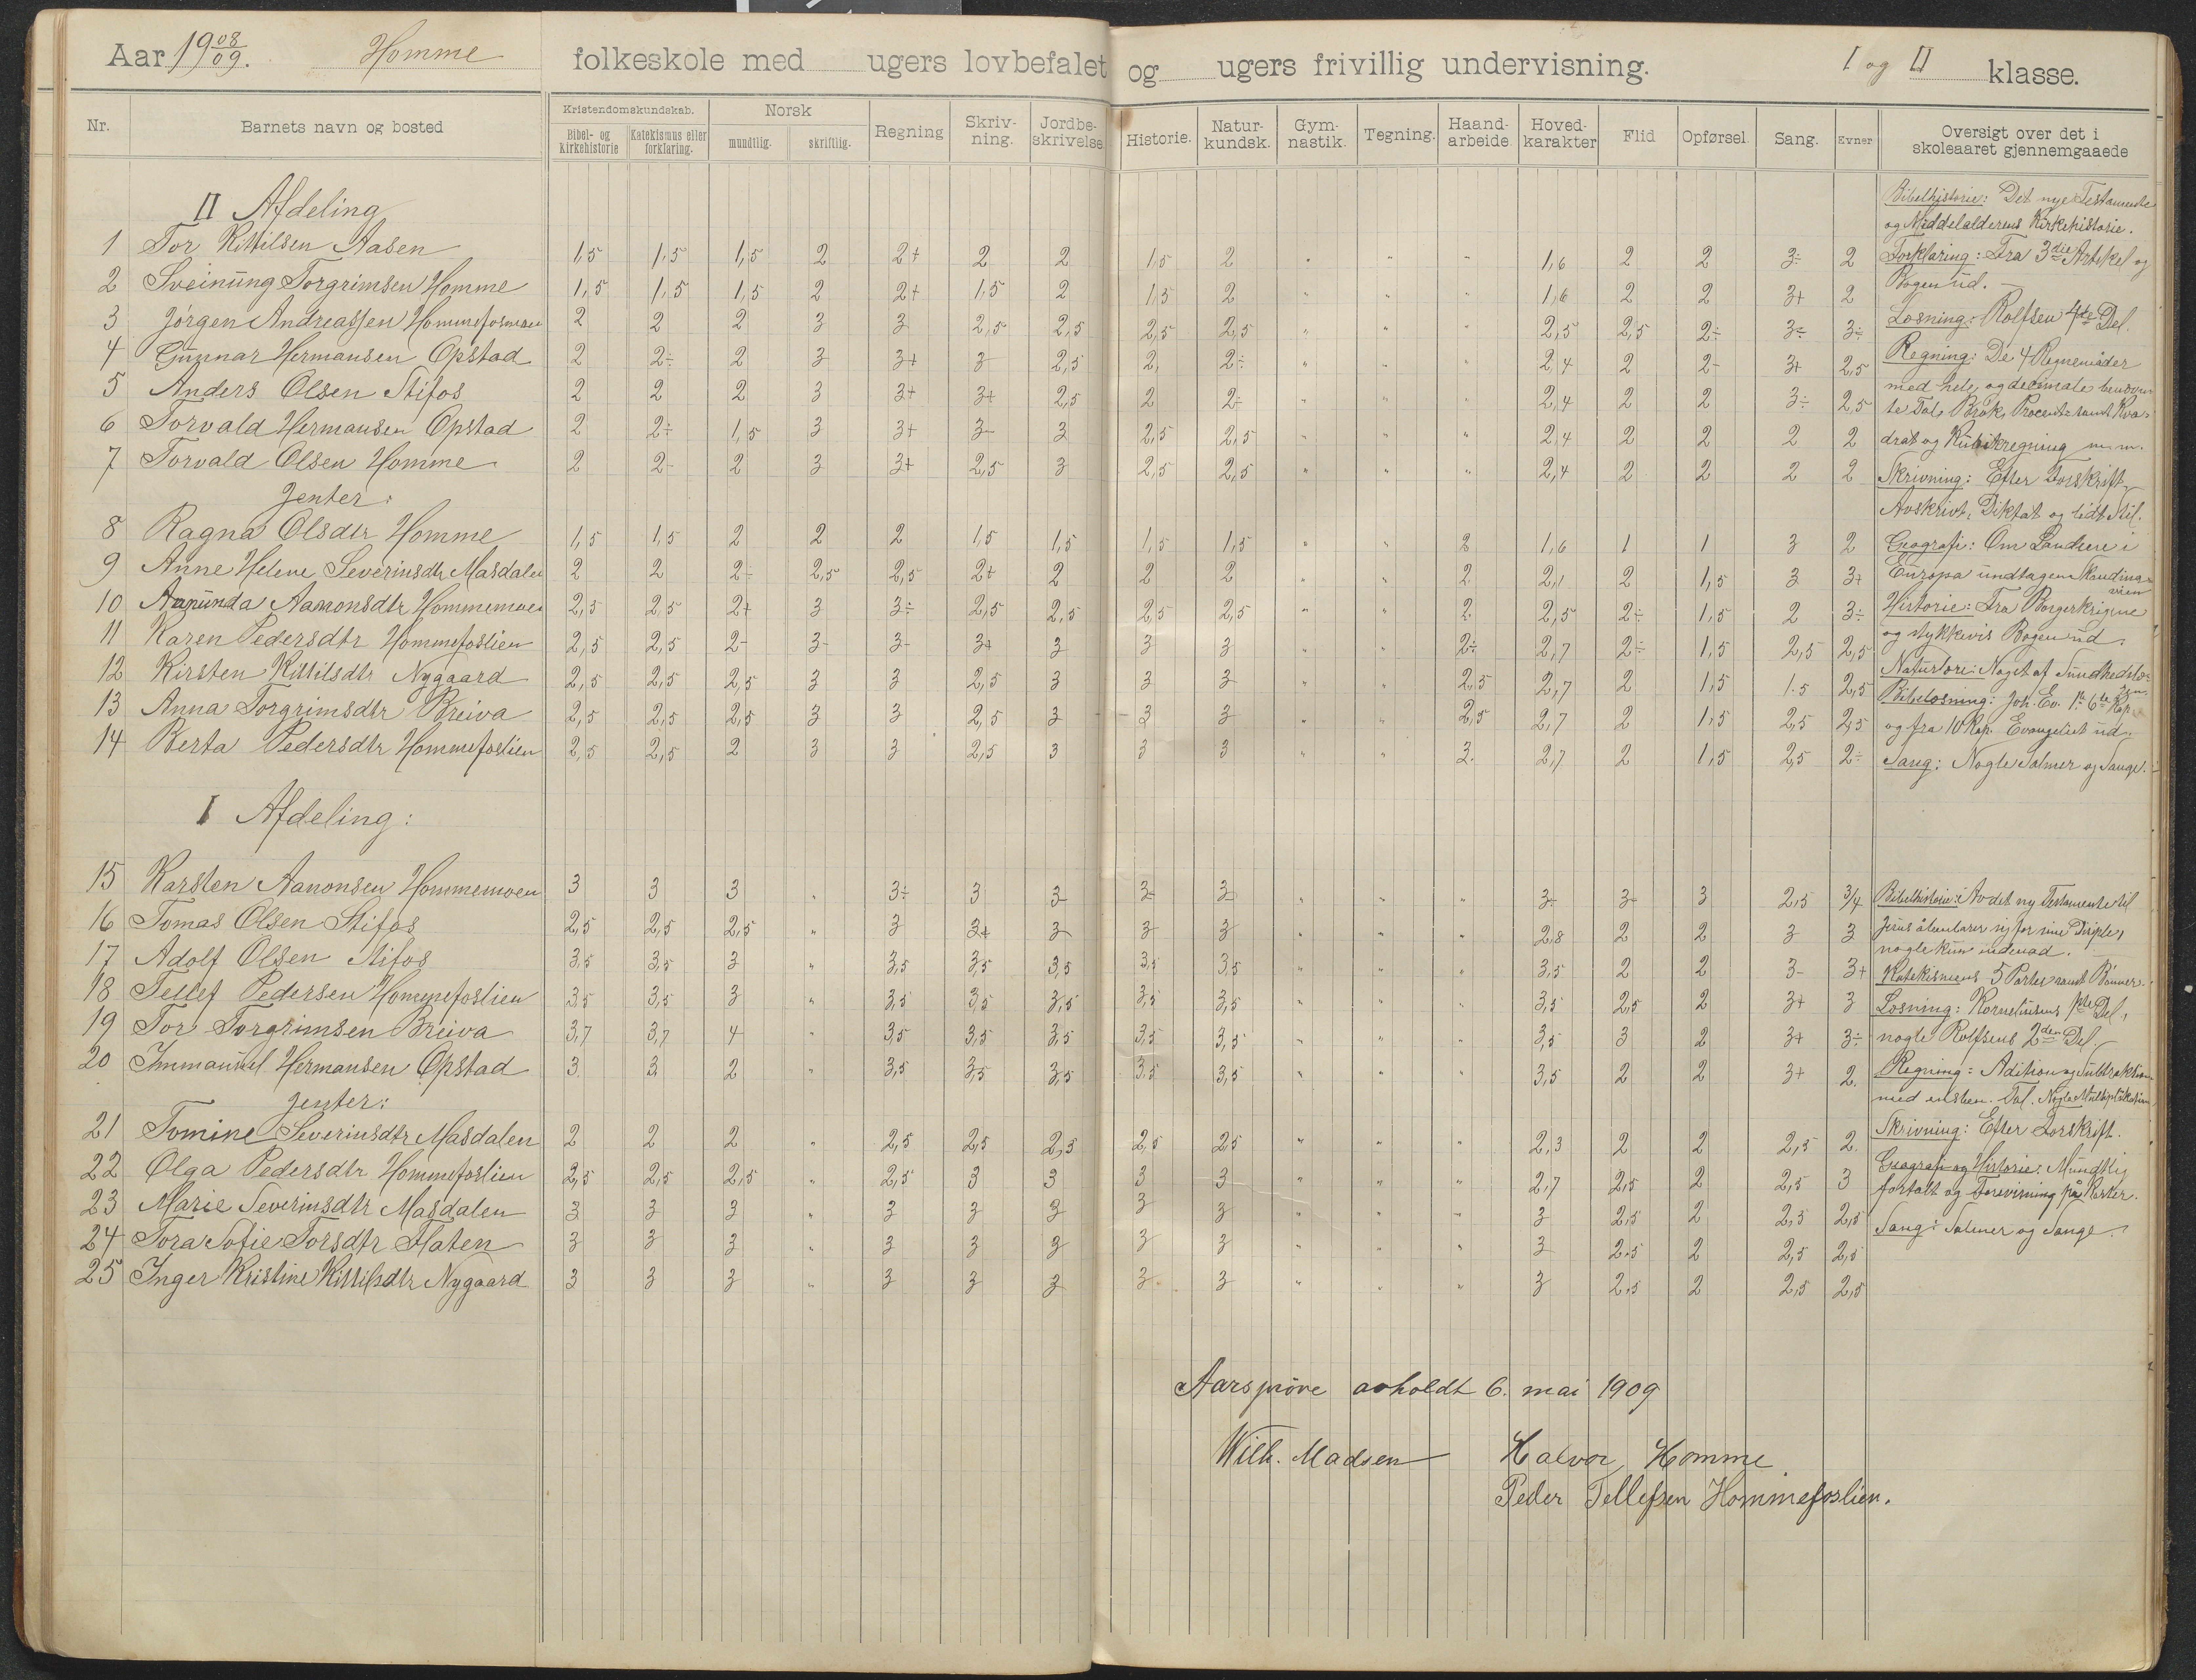 Aar 19 08/09. Homme folkeskole med ugers lovbefalet og ugers frivillig undervisning. I og II klasse.
Nr. Barnets navn og bosted Kristendomskundskab. Bibel- og kirkehistorie Katekismus eller forklaring. Norsk mundtlig. skriftlig. Regning Skriv-ning. Jordbe-skrivelse Historie. Natur-kundsk. Gym-nastik. Tegning. Haand-arbeide. Hoved-karakter Flid Opførsel. Sang. Evner Oversigt over det i skoleaaret gjennemgaaede
II Afdeling
1 Tor Kittilsen Aasen 1,5 1,5 1,5 2 2+ 2 2 1,5 2 " " " 1,6 2 2 3÷ 2
2 Sveinung Torgrimsen Homme 1,5 1,5 1,5 2 2+ 1,5 2 1,5 2 " " " 1,6 2 2 3+ 2
3 Jörgen Andreassen Hommefosmoen 2 2 2 3 3 2,5 2,5 2,5 2,5 " " " 2,5 2,5 2÷ 3÷ 3÷
4 Gunnar Hermansen Opstad 2 2÷ 2 3 3+ 3 2,5 2, 2÷ " " " 2,4 2 2- 3+ 2,5
5 Anders Olsen Stifos 2 2 2 3 3+ 3+ 2,5 2 2÷ " " " 2,4 2 2 3÷ 2,5
6 Torvald Hermansen Opstad 2 2÷ 1,5 3 3+ 3- 3 2,5 2,5 " " " 2,4 2 2 2 2
7 Torvald Olsen Homme 2 2- 2 3 3+ 2,5 3 2,5 2,5 " " " 2,4 2 2 2 2
Jenter:
8 Ragna Olsdtr Homme 1,5 1,5 2 2 2 1,5 1,5 1,5 1,5 " " 2 1,6 1 1 3 2
9 Anne Helene Severinsdtr Masdalen 2 2 2÷ 2,5 2,5 2+ 2 2 2 " " 2 2,1 2 1,5 3 3+
10 Aanunda Aanonsdtr Hommemoen 2,5 2,5 2+ 3 3÷ 2,5 2,5 2,5 2,5 " " 2 2,5 2÷ 1,5 2 3÷
11 Karen Pedersdtr Hommefoslien 2,5 2,5 2- 3- 3- 3+ 3 3 3 " " 2÷ 2,7 2÷ 1,5 2,5 2,5
12 Kirsten Kittilsdtr Nygaard 2,5 2,5 2,5 3 3 2,5 3 3 3 " " 2,5 2,7 2 1,5 1.5 2,5
13 Anna Torgrimsdtr Breiva 2,5 2,5 2,5 3 3 2,5 3 3 3 " " 2,5 2,7 2 1,5 2,5 2,5
14 Berta Pedersdtr Hommefoslien 2,5 2,5 2 3 3 2,5 3 3 3 " " 3. 2,7 2 1,5 2,5 2÷
Bibelhistorie: Det nye Testamente
og Middelalderens Kirkehistorie.
Forklaring: Fra 3die Artikel og
Bogen ud.
Læsning: Rolfsen 4de Del.
Regning: De 4 Regnemåder
med hele og decimale benævn-
te Tal, Brök, Procent samt Kva-
drat og Kubikregning m.m.
Skrivning: Efter Forskrift,
Avskrivt, Diktat og lidt Stil.
Geografi: Om Landene i
Europa undtagen Skandina-
vien
Historie: Fra Borgerkrigene
og stykkevis Bogen ud.
Naturlære: Noget af Sundhedslæ-
ren.
Bibellæsning: Joh. Ev. 1ste 6te Kap.
og fra 10 Kap. Evangeliet ud.
Sang: Nogle Salmer og Sange.
I Afdeling:
15 Karsten Aanonsen Hommemoen 3 3 3 " 3÷ 3 3 3- 3 " " " 3- 3- 3 2,5 3/4
16 Tomas Olsen Stifos 2,5 2,5 2,5 " 3 3+ 3 3 3 " " " 2,8 2 2 3 3
17 Adolf Olsen Stifos 3,5 3,5 3 " 3,5 3,5 3,5 3,5 3,5 " " " 3,5 2 2 3- 3+
18 Tellef Pedersen Hommefoslien 3,5 3,5 3 " 3,5 3,5 3,5 3,5 3,5 " " " 3,5 2,5 2 3+ 3
19 Tor Torgrimsen Breiva 3,7 3,7 4 " 3,5 3,5 3,5 3,5 3,5 " " " 3,5 3 2 3+ 3÷
20 Immanuel Hermansen Opstad 3 3 2 " 3,5 3,5 3,5 3,5 3,5 " " " 3,5 2 2 3+ 2.
Jenter:
21 Tomine Severinsdtr Masdalen 2 2 2 " 2,5 2,5 2,5 2,5 2,5 " " " 2,3 2 2 2,5 2.
22 Olga Pedersdtr Hommefoslien 2,5 2,5 2,5 " 2,5 3 3 3 3 " " " 2,7 2,5 2 2,5 3
23 Marie Severinsdtr Masdalen 3 3 3 " 3 3 3 3 3 " " " 3 2,5 2 2,5 2,5
24 Tora Sofie Torsdtr Flaten 3 3 3 " 3 3 3 3 3 " " " 3 2,5 2 2,5 2,5
25 Inger Kristine Kittilsdtr Nygaard 3 3 3 " 3 3 3 3 3 " " " 3 2,5 2 2,5 2,5
Bibelhistorie: Av det ny Testamente til
Jesus åbenbarer sig for sine Disiple,
nogle kun indenad.
Katekismens 5 Parter samt Bönner.
Læsning: Korneliusens 1ste Del,
nogle Rolfsens 2den Del.
Regning: Adition og Subtraktion
med ensben. Tal. Nogle Multiplikation,
Skrivning: Efter Forskrift.
Geografi og Historie: Mundtlig
fortalt og Forevisning på Karter.
Sang: Salmer og Sange.
Aarsprøve avholdt 6. mai 1909
Wilh. Madsen Halvor Homme
Peder Tellefsen Hommefoslien.